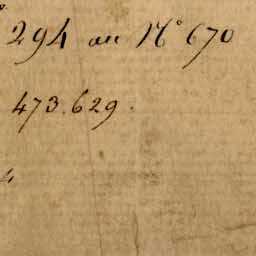 294 au N° 670
473.629.